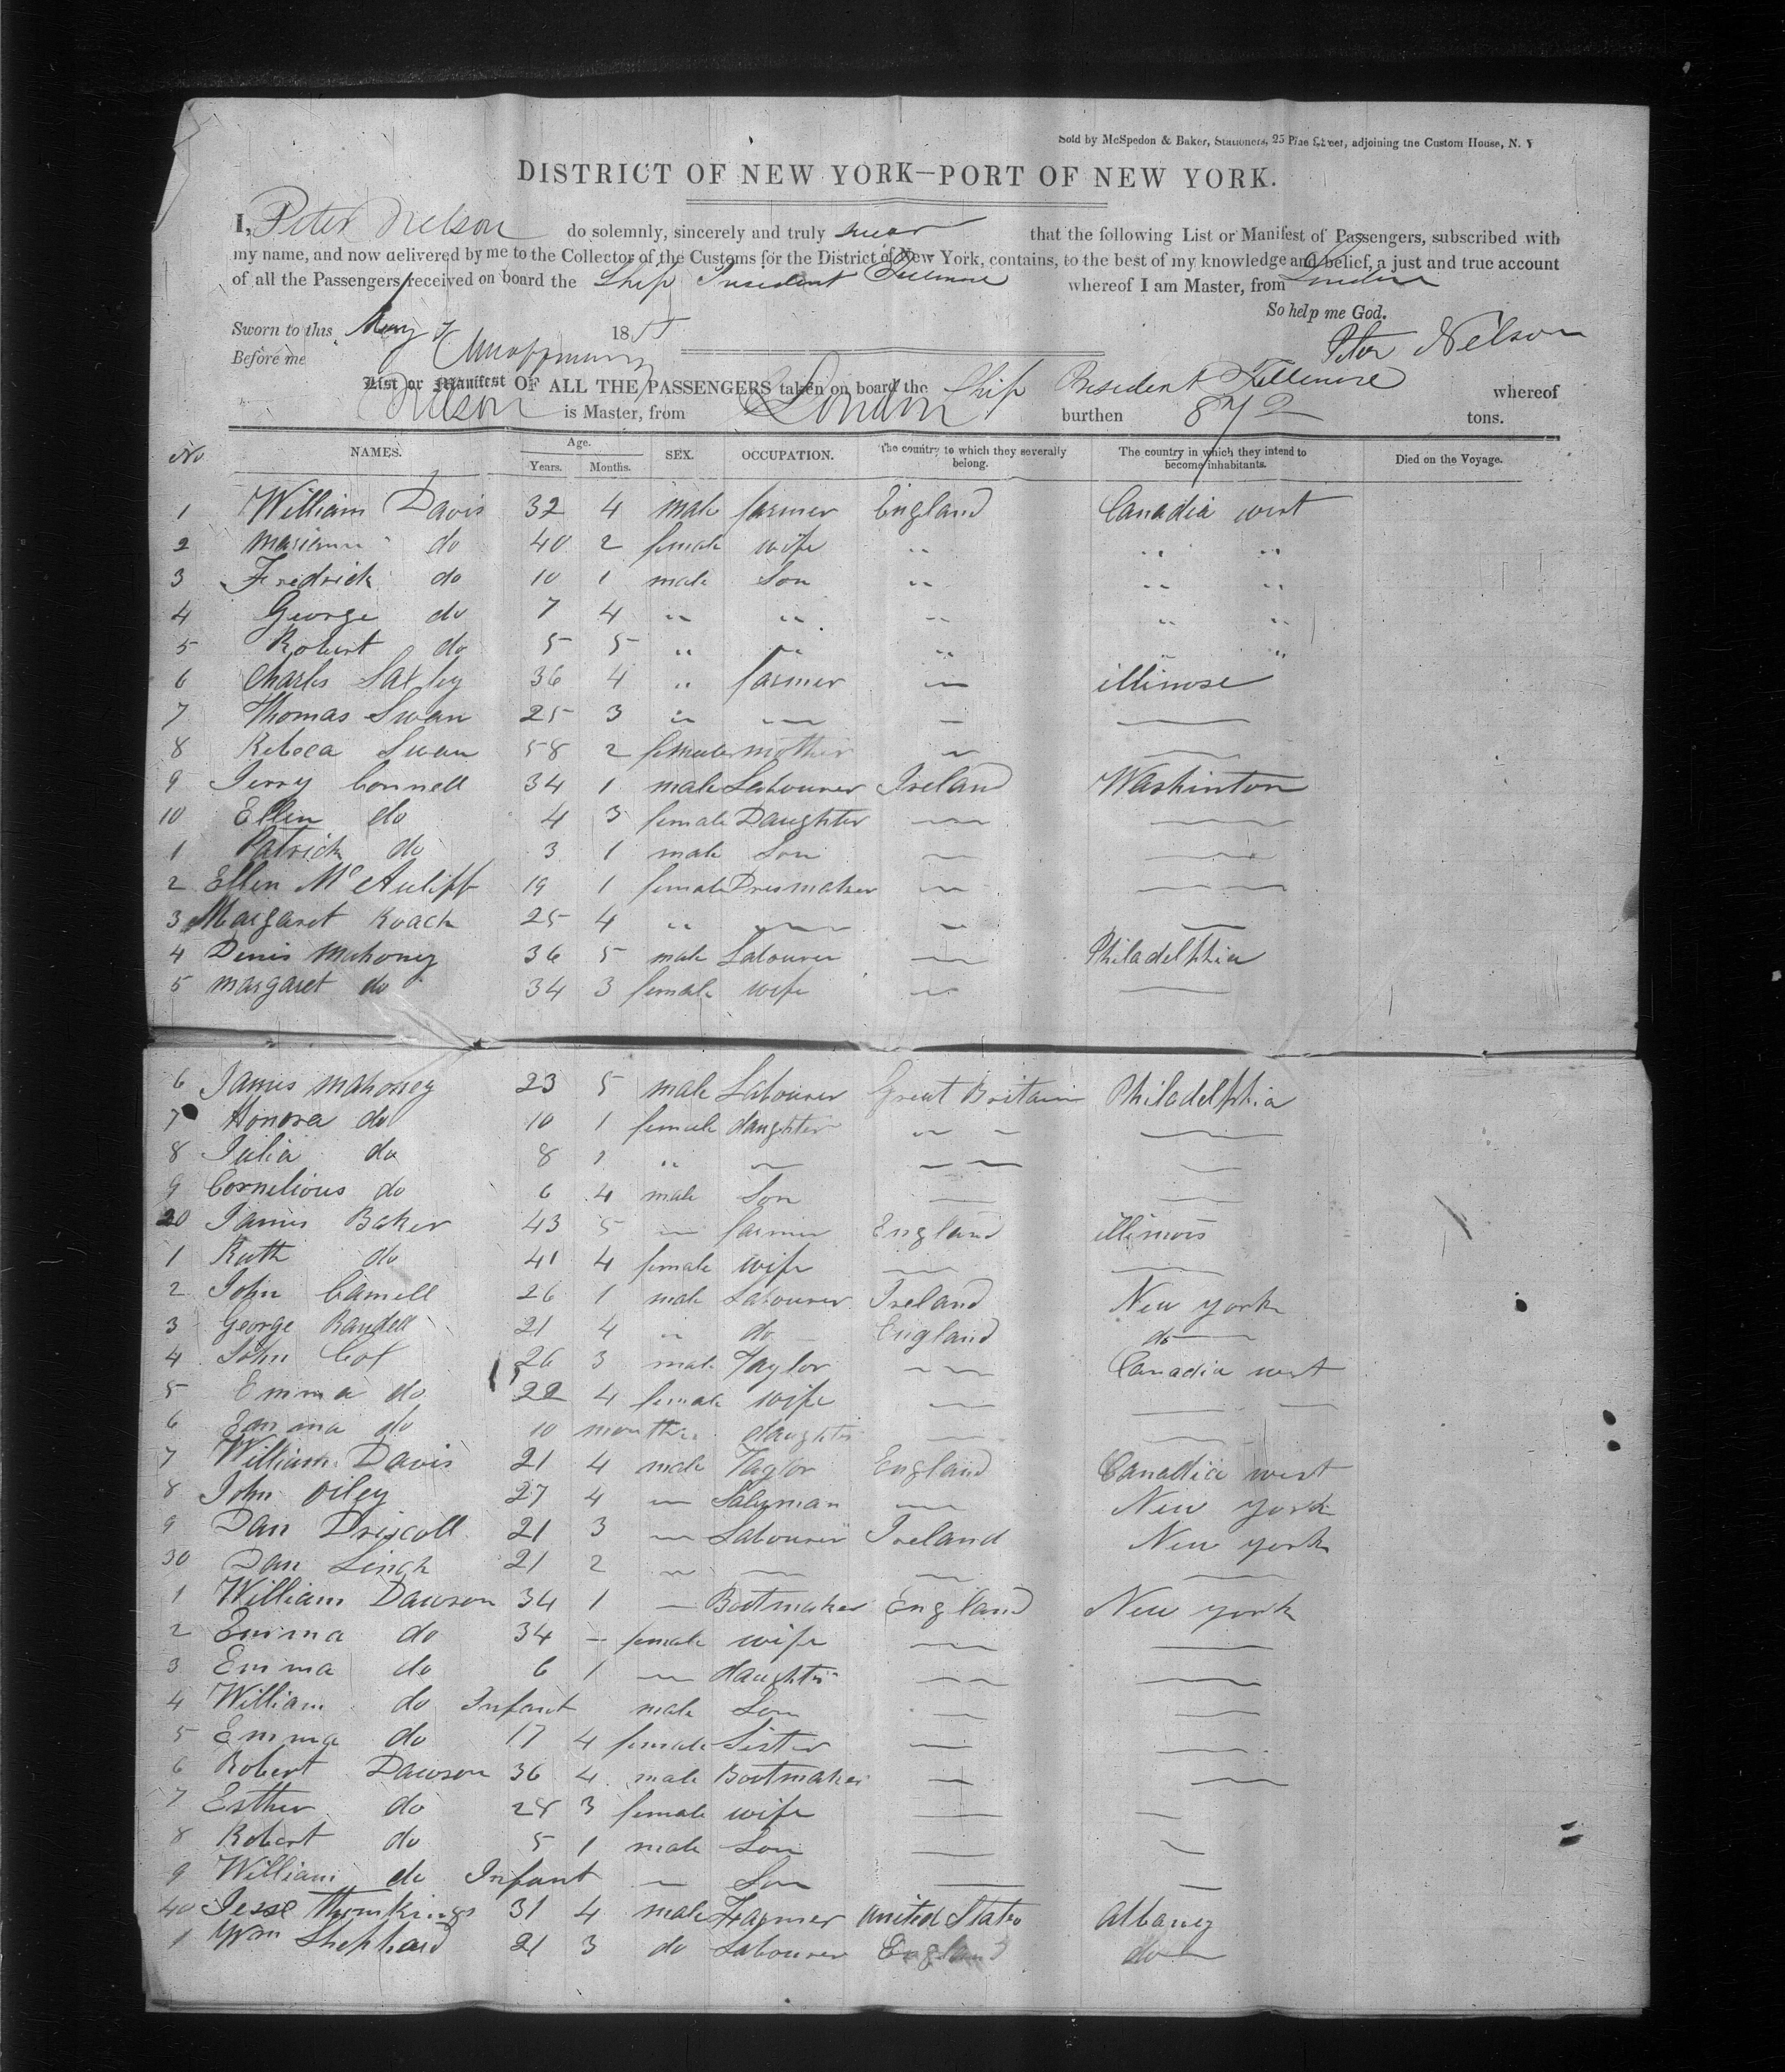 Sold by McSpedon & Baker, Stationers, 25 Pine Street, adjoining the Custom House, N. Y
DISTRICT OF NEW YORK—PORT OF NEW YORK.
I, Peter Nelson do solemnly, sincerely and truly swear that the following List or Manifest of Passengers, subscribed with
my name, and now delivered by me to the Collector of the Customs for the District of New York, contains, to the best of my knowledge and belief, a just and true account
of all the Passengers received on board the Ship President Fillmore whereof I am Master, from London
So help me God.
Sworn to this May 7 18
Peter Nelson
Before me
List or Manifest OF ALL THE PASSENGERS taken on board the Ship President Fillmore whereof
Nelson is Master, from London burthen 872 tons.
No NAMES. Age. Years. Months. SEX. OCCUPATION. The country to which they severally belong. The country in which they intend to become inhabitants. Died on the Voyage.
1 William Davis 32 4 male farmer England Canadia west
2 mariann do 40 2 female wife " " "
3 Fredrick do 10 1 male Son " " "
4 George do 7 4 " " " " "
5 Robert do 5 5 " " " " "
6 Charles Saxby 36 4 " farmer — illinose
7 Thomas Swan 25 3 " — — —
8 Rebeca Swan 58 2 female mother — —
9 Jerry Connell 34 1 male Labourer Ireland Washinton
10 Ellen do 4 3 female Daughter — —
1 Patrick do 3 1 male Son — —
2 Ellen McAuliff 19 1 female Dresmaker — —
3 Margaret Roach 25 4 " — — —
4 Denis Mahoney 36 5 male Labourer — Philadelphia
5 margaret do 34 3 female wife — —
6 James mahoney 23 5 male Labourer Great Britain Philadelphia
7 Honora do 10 1 female daughter — — —
8 Julia do 8 1 " — — — —
9 Cornelious do 6 4 male Son — —
20 James Baker 43 5 — farmer England illinois
1 Ruth do 41 4 female wife — —
2 John Camell 26 1 male Labourer Ireland New york
3 George Randell 21 4 " do England do
4 John Cox 26 3 male Taylor — Canadia west
5 Emma do 22 4 female wife — —
6 Emma do 10 months daughter — —
7 William Davis 21 4 male Taylor England Canadia west
8 John Oiley 27 4 — Salyman — New york
9 Dan Driscoll 21 3 — Labourer Ireland New york
30 Dan Linch 21 2 — — — —
1 William Dawson 34 1 — Bootmaker England New york
2 Emma do 34 – female wife — —
3 Emma do 6 1 — daughter — —
4 William do Infant male Son — —
5 Emma do 17 4 female Sister — —
6 Robert Dawson 36 4 male Bootmaker — —
7 Esther do 28 3 female wife — —
8 Robert do 5 1 male Son — —
9 William do Infant — Son — —
40 Jesse Thomkings 31 4 male Farmer united States Albany
1 Wm Shephard 21 3 do Labourer England do